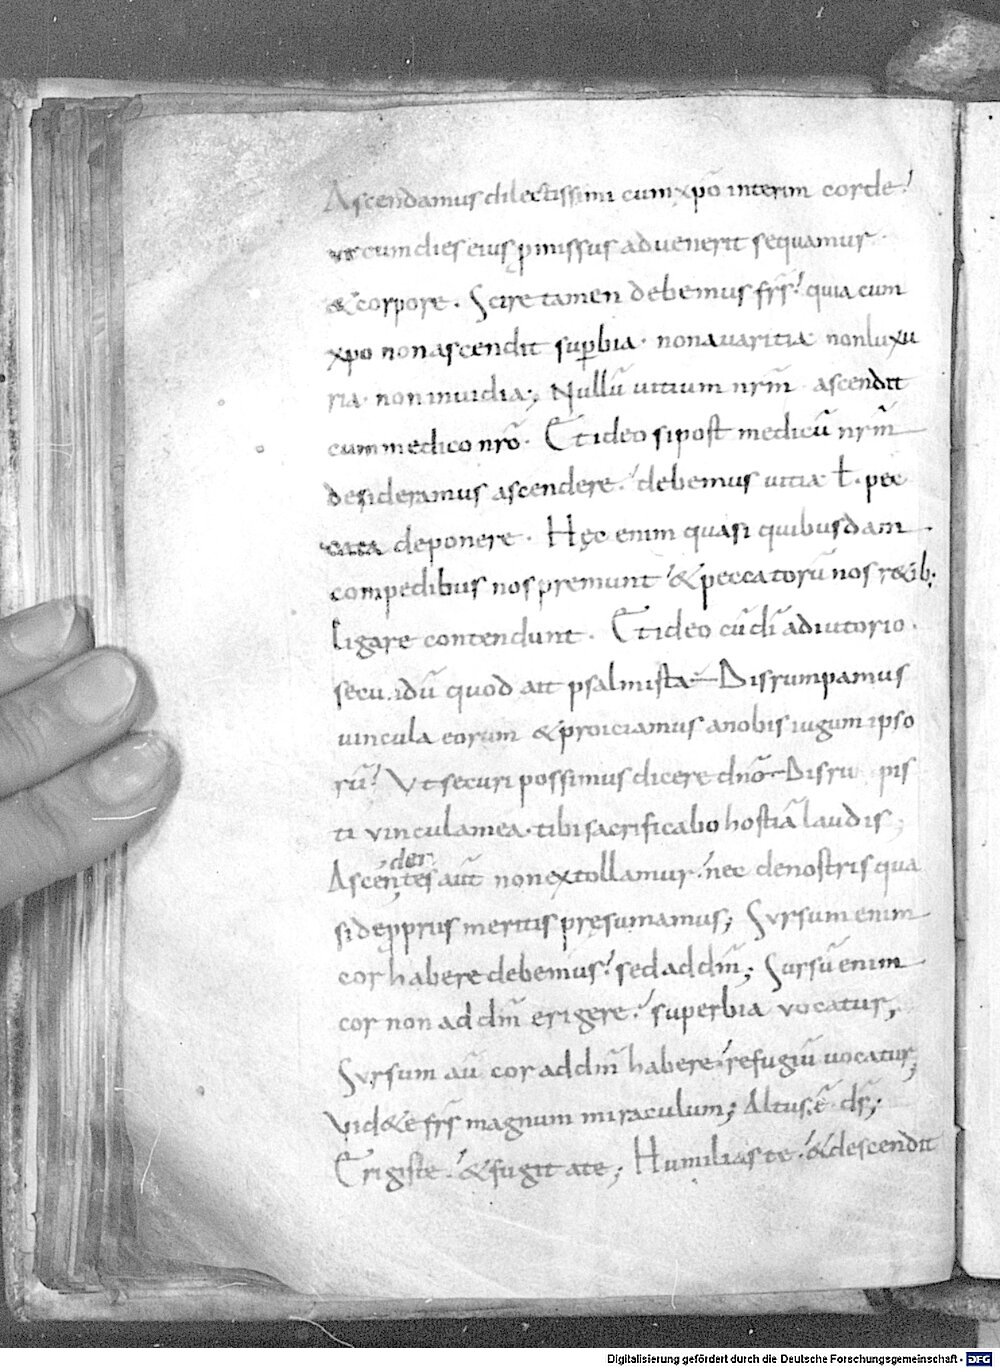 Ascendamus dilectissimi cum xpō interim corde.
ut cum dies eius pmissus aduenerit sequamur
& corpore. Scire tamen debemus frs̄. quia cum
xpo non ascendit supbia. non auaritia non luxu
ria. non inuidia; Nullū uitium nrm̄ ascendit
cum medico nrō. Et ideo si post medicū nrm̄
desideramus ascendere. debemus uitia ł. pec
cata deponere. Hęc enim quasi quibusdam
compedibus nos premunt & peccatorū nos r&ib;
ligare contendunt. Et ideo cū dī adiutorio.
secundū quod ait psalmista Disrumpamus
uincula eorum & proiciamus a nobis iugum ipso
rū. Ut securi possimus dicere dnō Disru pis
ti vincula mea. tibi sacrificabo hostiā laudis;
der
Ascentes aut̄ non extollamur. nec de nostris qua
si de ppriis meritis pręsumamus; Sursum enim
cor habere debemus. sed ad dm̄; Sursū enim
cor non ad dm̄ erigere. superbia vocatur;
Sursum aū cor ad dm̄ habere refugiū uocatur;
Vid&e frs̄ magnum miraculum; Altus ē ds̄;
Erigis te. & fugit a te; Humilias te. & descendit
Digitalisierung gefördert durch die Deutsche Forschungsgemeinschaft - DFG